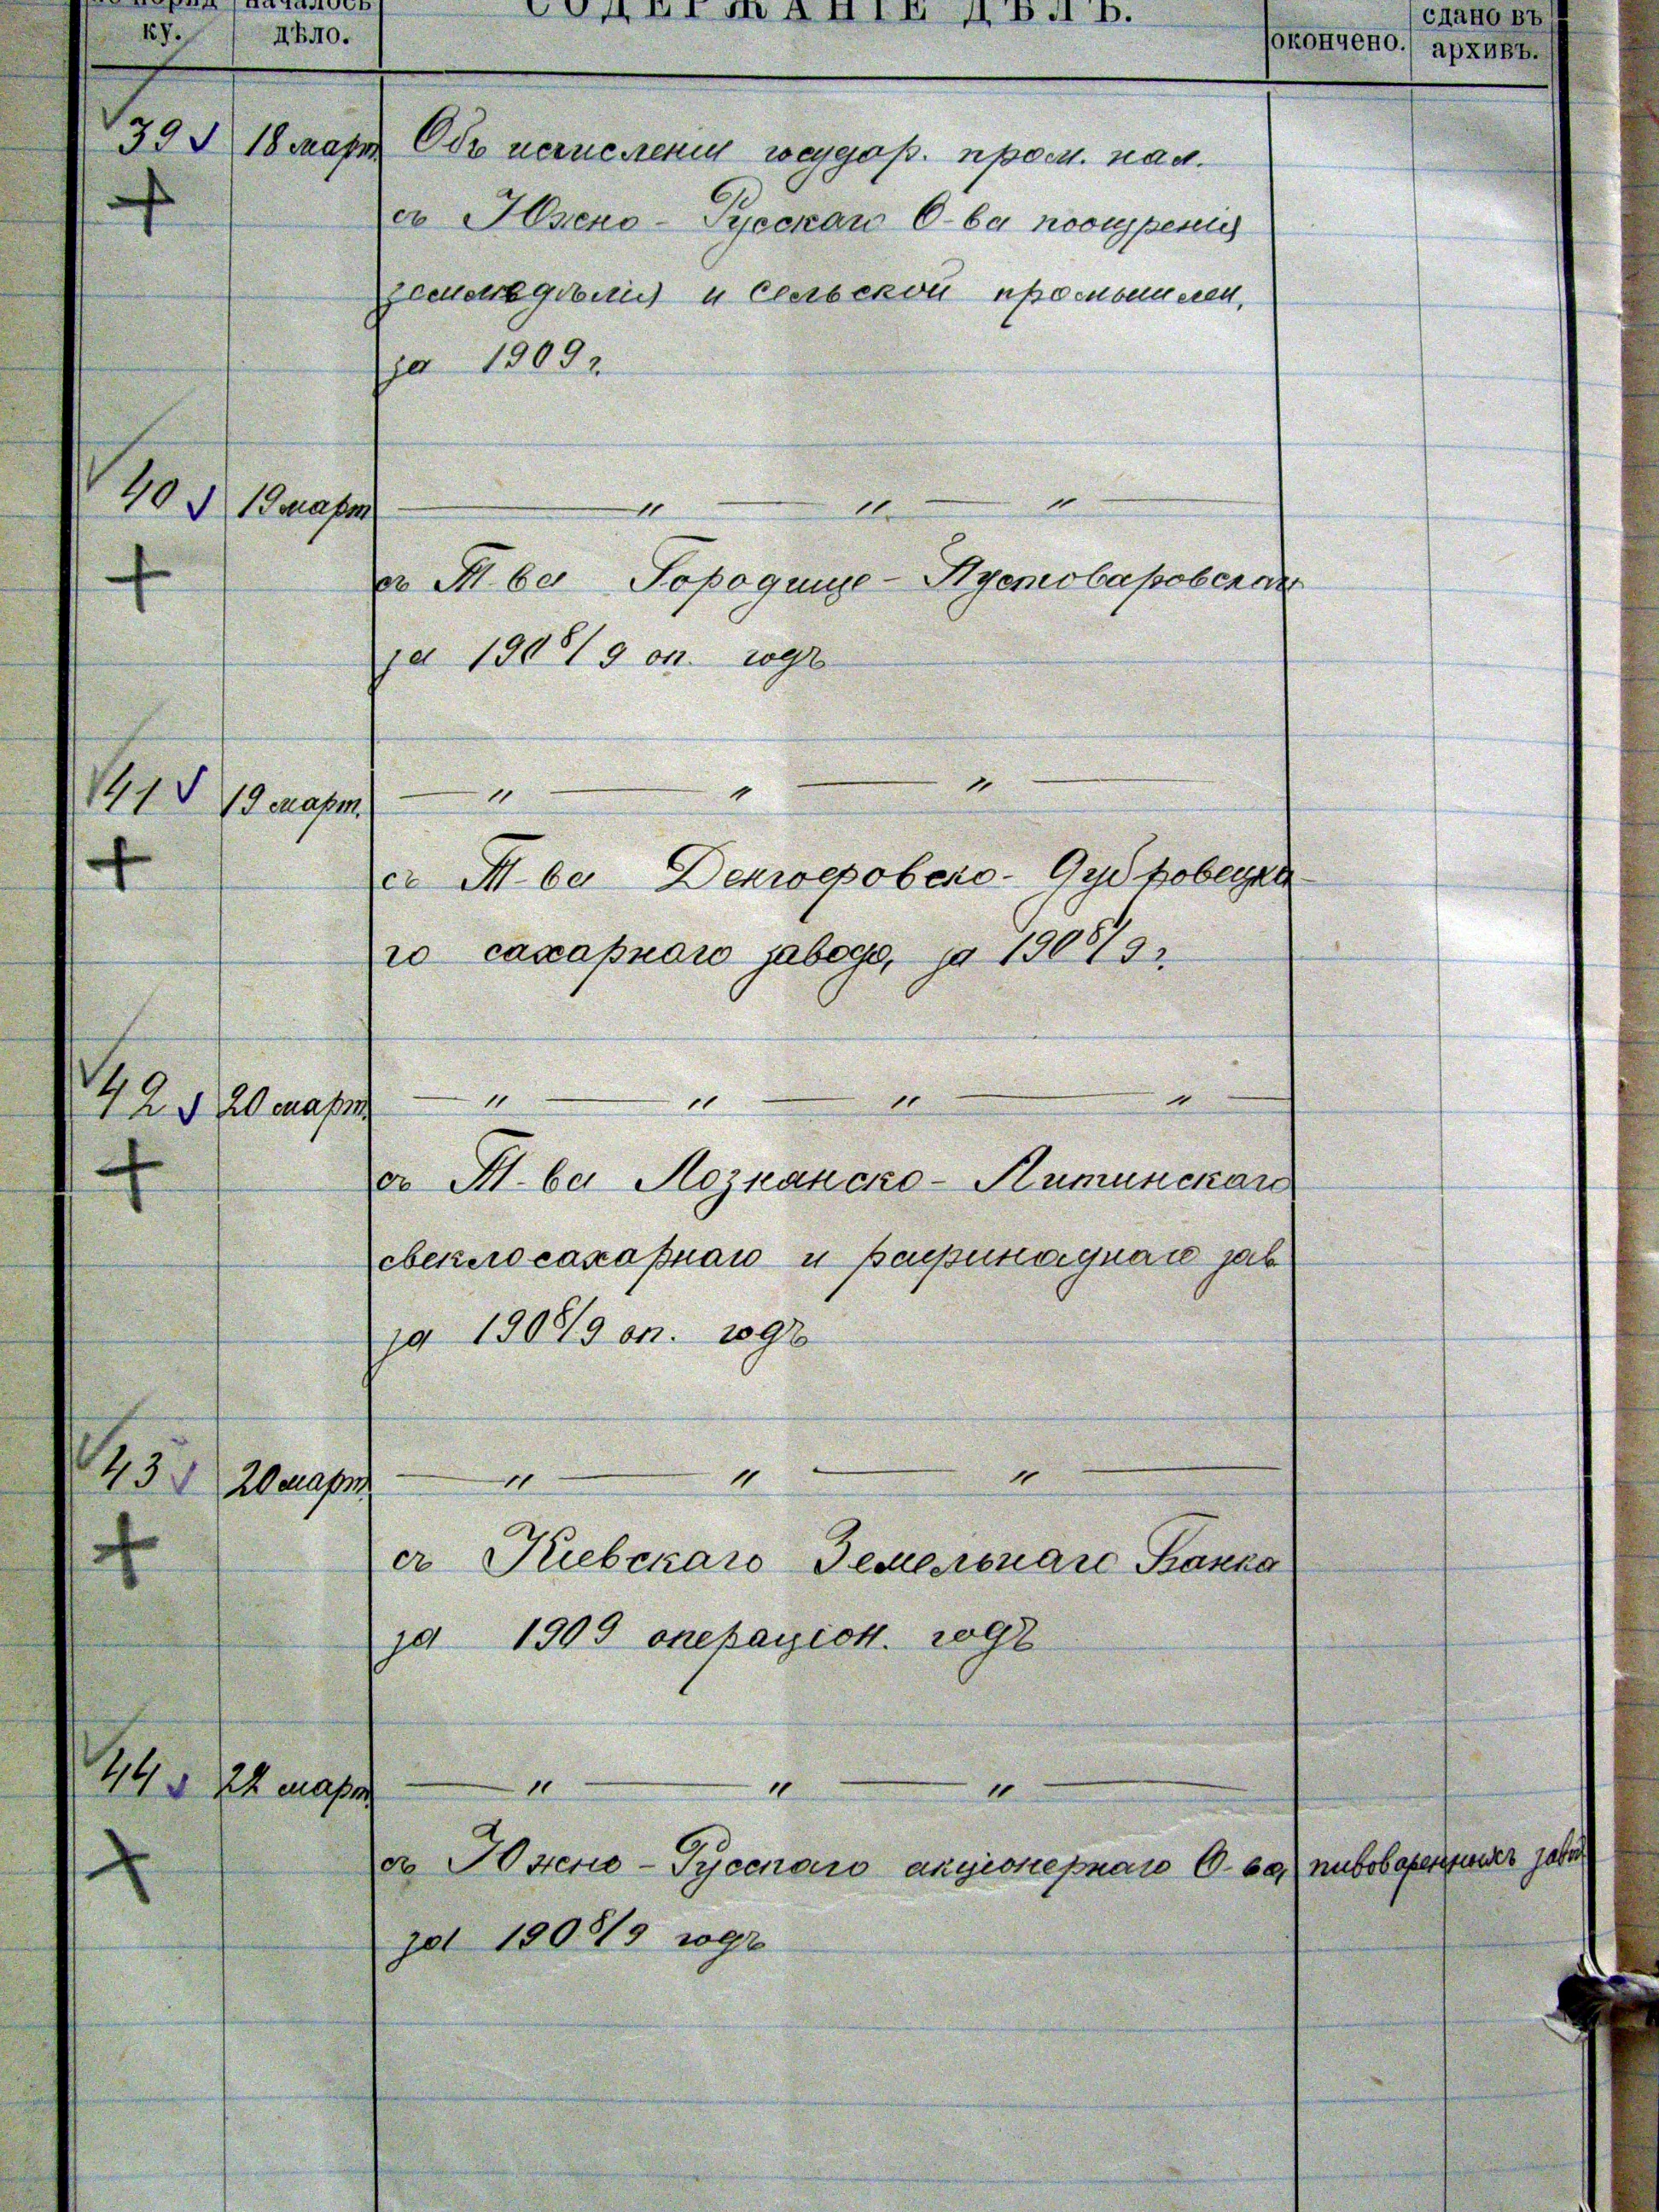 по поряд
ку.
началось
дѣло.
СОДЕРЖАНІЕ ДѢЛЪ.
окончено.
сдано въ
архивъ.
39 18 март. Объ исчисленіи государ. пром. нал.
съ Южно-Русскаго О-ва поощренія
земледѣлія и сельской промышлен.
за 1909 г.
40 19 март — " — " — " —
съ Т-ва Городище-Пустоваровскаго
за 1908/9 оп. годъ
41 19 март. — " — " — " —
съ Т-ва Денгофовско-Дубровецка-
го сахарнаго завода, за 1908/9 г.
42 20 март. — " — " — " — " —
съ Т-ва Лознанско-Литинскаго
свеклосахарнаго и рафинаднаго зав
за 1908/9 оп. годъ
43 20 март. — " — " — " —
съ Кіевскаго Земельнаго Банка
за 1909 операціон. годъ
44 22 март. — " — " — " —
съ Южно-Русскаго акціонернаго О-ва пивоваренныхъ завод
за 1908/9 годъ